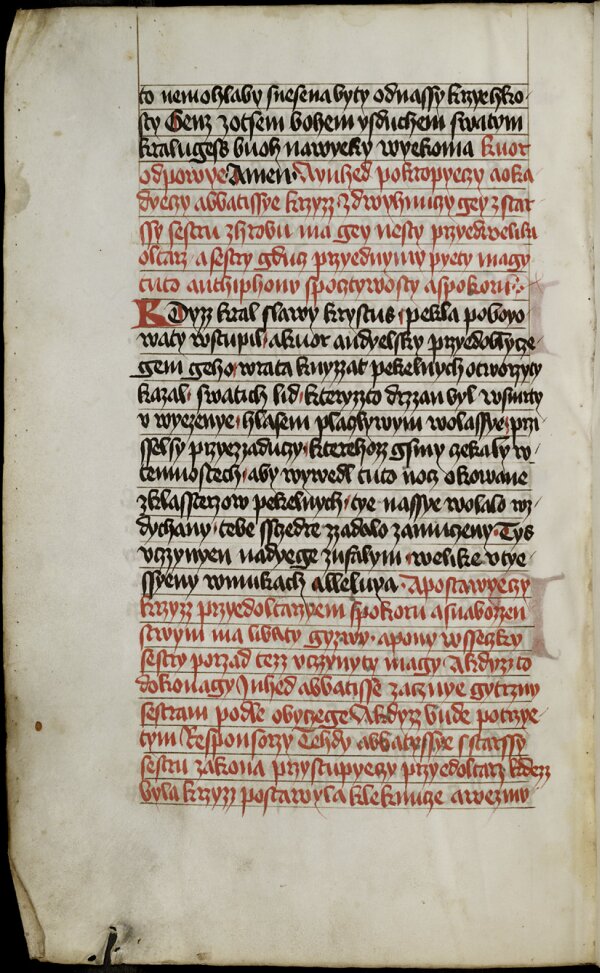 to nemohlaby snesena byty odnassy krzyehko
sty Genz zotsem bohem ysduchem swatym
kralugess buoh nawyeky wyekoma kuor
odpowye Amen Aynhed pokropyeczy aoka
dyeczy abbatissye krzyzz zdwyhnuczy gey zstar
ssy sestru zhrobu ma gey nesty przyedweliku
oltarz a sestry gducz przyednymy pyety magy
tuto anthiphony spocztywosty aspokoru
KDyzz kral slawy krystus pekla poboyo
waty wstupil akuor andyelsky przyedoblycze
gem geho wrata knyzzat pekelnych otworzyty
kazal swatich lid kteryzzto drzzan byl wsmrty
v wyezenye hlasem placzlywym wolassye przi
sselsy przyezzaduczy kterehozz gsmy czekaly w
temnostech aby wywedl tuto nocz okowane
zklassterzow pekelnych tye nassye wolalo wz
dychany tebe sszedre zzadalo zamuczeny Tys
vczynyen nadyege zufalym welike vtye
ssyeny wmukach alleluya Apostawyeczy
krzyzz przyedoltarzyem spokoru asnabozzen
stwym ma libaty gyzwy apony wsseczky
sestry porzad tezz vczynyty magy Akdyzz to
dokonagy Inhed abbatisse zacznye gytrzny
sestram podle obyczege Akdyzz bude potrzye
tym Responsorzy Tehdy abbatyssye sstarssy
sestru zakona przystupyeczy przyedoltarz kdezz
byla krzyzz postawyla klekmucze awezmu